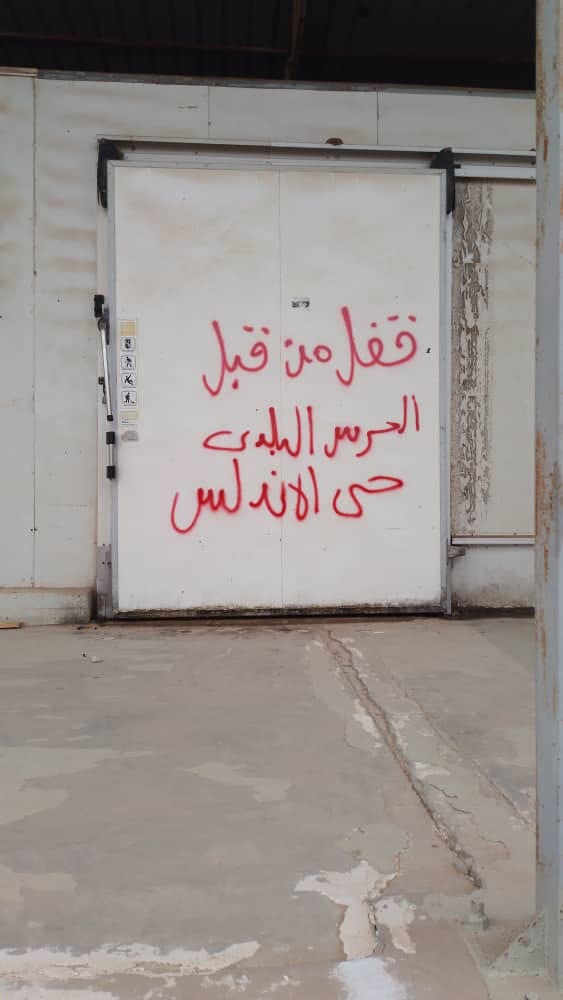 قفل من قبل
الحرس البلدى
حى الاندلس